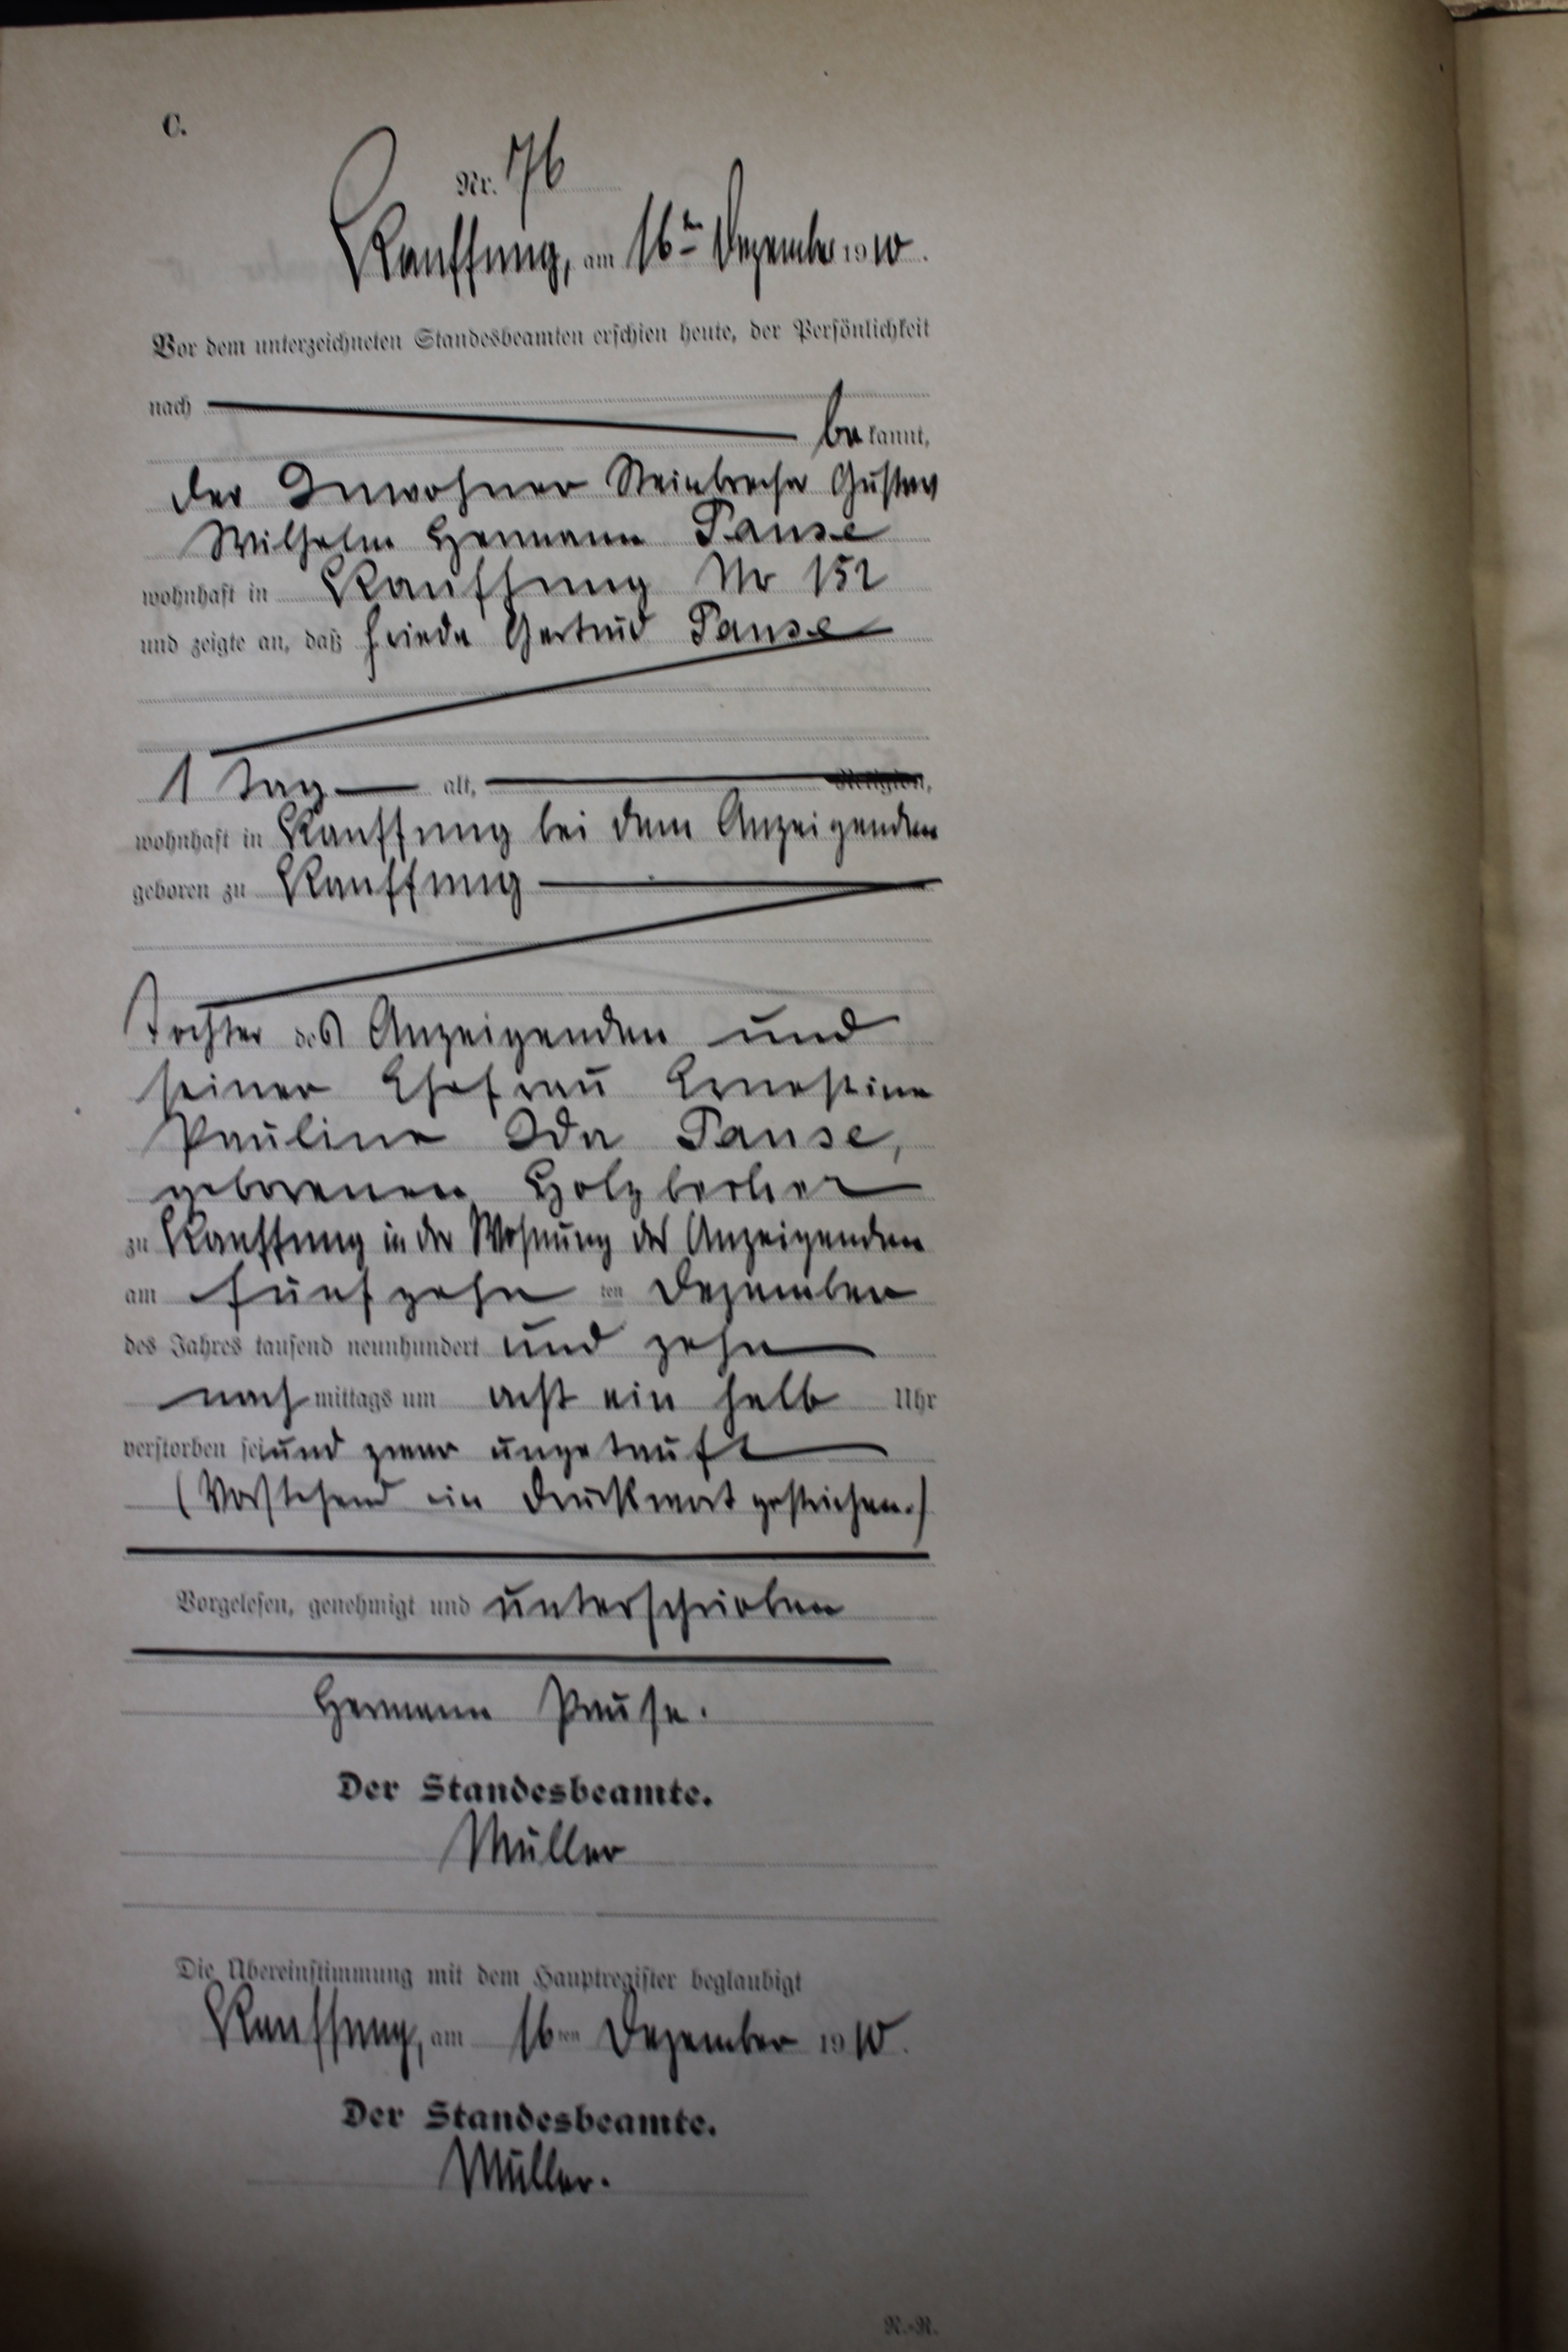 C.
Nr. 76
Kauffung, am 16ten Dezember 1910.
Vor dem unterzeichneten Standesbeamten erschien heute, der Persönlichkeit
nach
bekannt,
der Inwohner Steinbrecher Gustav
Wilhelm Hermann Pause
wohnhaft in Kauffung Nr 152
und zeigte an, daß Frieda Gertrud Pause
1 Tag alt, Religion,
wohnhaft in Kauffung bei dem Anzeigenden
geboren zu Kauffung
Tochter des Anzeigenden und
seiner Ehefrau Ernestine
Pauline Ida Pause,
geborenen Holzbecher
zu Kauffung in der Wohnung des Anzeigenden
am fünfzehn ten Dezember
des Jahres tausend neunhundert und zehn
nachmittags um acht ein halb Uhr
verstorben sei und zwar ungetauft
(Vorstehend ein Druckwort gestrichen.)
Vorgelesen, genehmigt und unterschrieben
Hermann Pause.
Der Standesbeamte.
Müller
Die Übereinstimmung mit dem Hauptregister beglaubigt
Kauffung, am 16ten Dezember 1910.
Der Standesbeamte.
Müller.
R.-R.